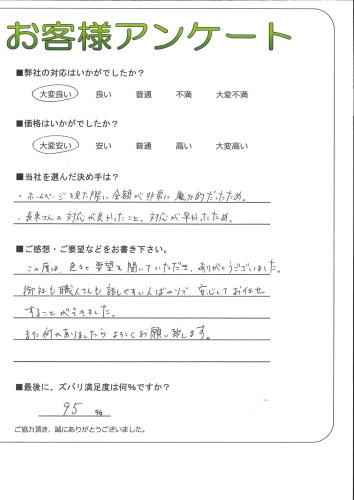 お客様アンケート
■弊社の対応はいかがでしたか？
大変良い 良い 普通 不満 大変不満
■価格はいかがでしたか？
大変安い 安い 普通 高い 大変高い
■当社を選んだ決め手は？
・ホームページを見た際に金額が非常に魅力的だったため。
・長末さんの対応が良かったこと、対応が早かったため。
■ご感想・ご要望などをお書き下さい。
この度は、色々と要望を聞いていただき、ありがとうございました。
御社も職人さんも話しやすい人ばかりで、安心してお任せ
することができました。
また何かありましたらよろしくお願い致します。
■最後に、ズバリ満足度は何%ですか？
95 %
ご協力頂き、誠にありがとうございました。